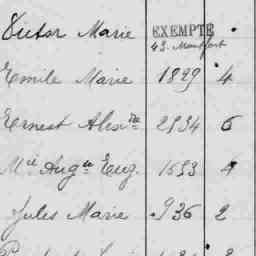 Victor Marie EXEMPTÉ
43. Montfort
Emile Marie 1829 4
Ernest Alexdre 2934 6
Mie Augte Eug. 1533 4
Jules Marie 936 2